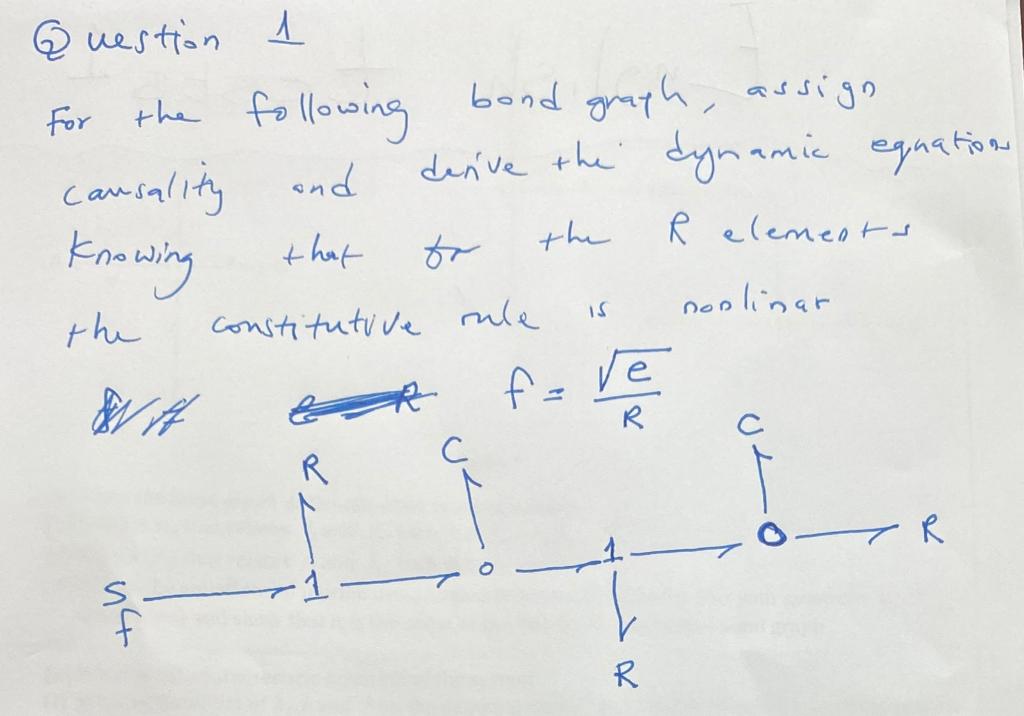 Question 1
For the following bond graph, assign
causality and derive the dynamic equations
Knowing that for the R elements
the constitutive rule is nonlinar
f = √e / R
R C C
Sf 1 0 1 0 R
R